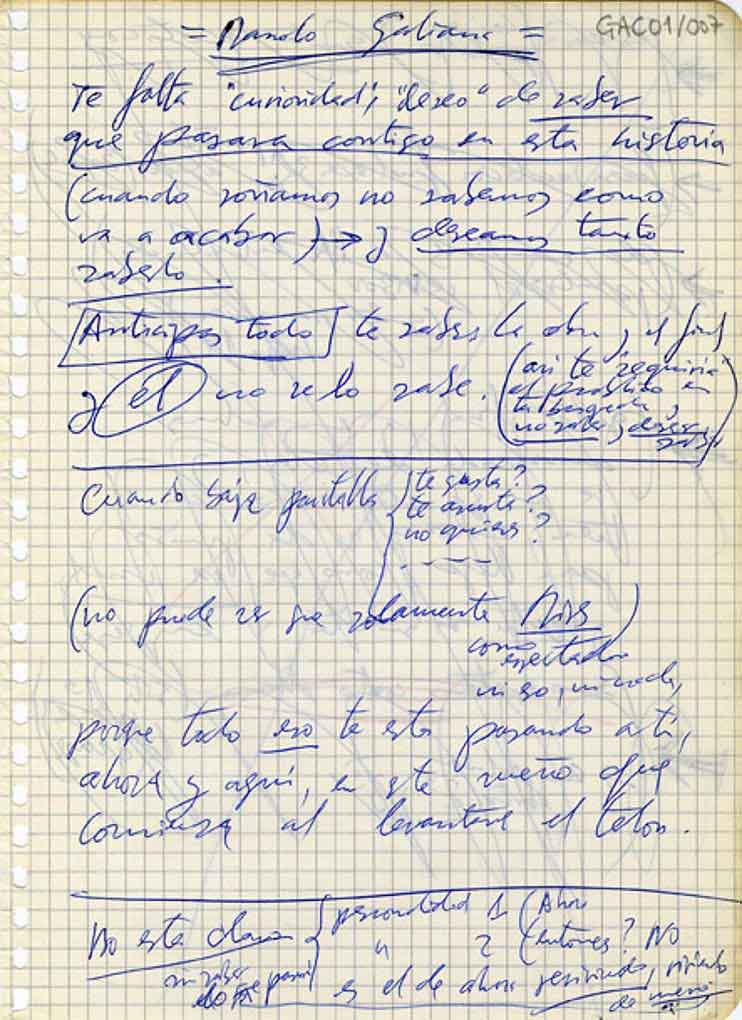 = Manolo Galiana = GAC01/007
Te falta "curiosidad", "deseo" de saber
que pasara contigo en esta historia
(cuando soñamos no sabemos como
va a acabar) → y deseamos tanto
saberlo.
Anticipas todo te sabes la obra, y el final
y él no se lo sabe. (asi te "seguiria"
el publico en
tu busqueda,
no saber, desear
saber)
Cuando baja pantalla te gusta?
te asusta?
no quieres?
. ----
(no puede ser que solamente Mires)
como
espectador
ni so, ni nada,
porque todo eso te esta pasando a ti,
ahora y aqui, en este sueño que
comienza al levantarse el telon.
No está claro personalidad 1 (Ahora
" 2 (entonces? NO
sin saber
lo que pasará es el de ahora reviviendo, viviendo
de nuevo